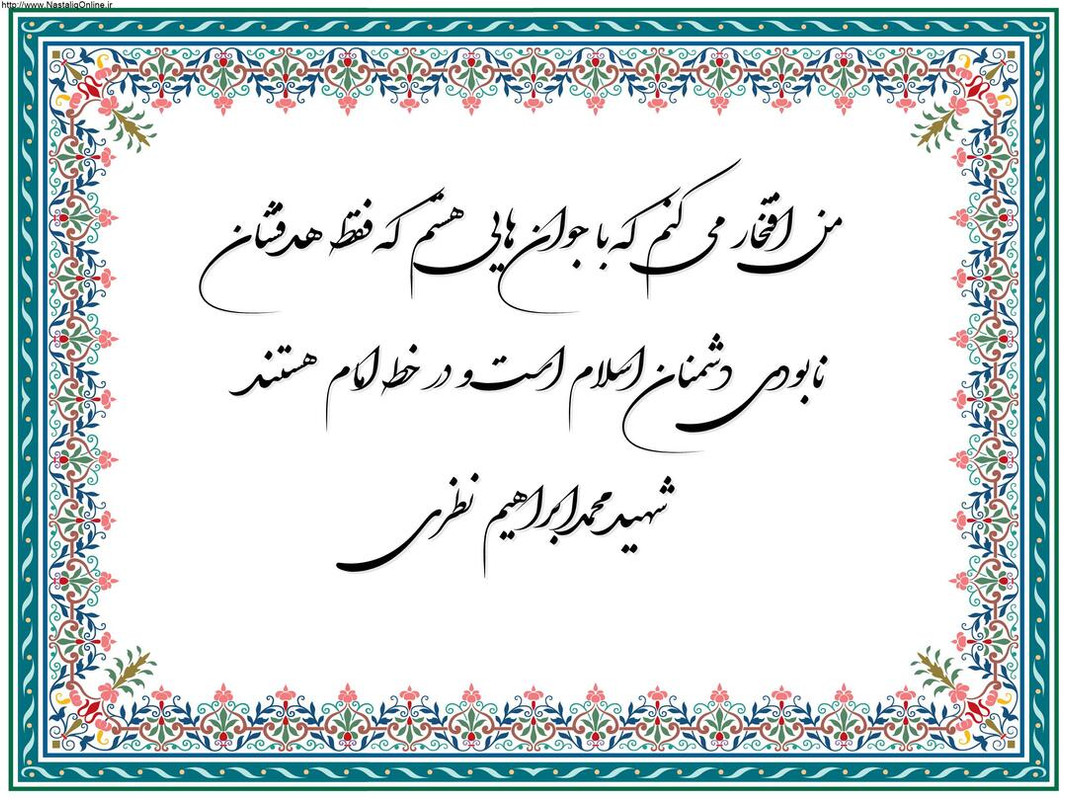 http://www.NastaliqOnline.ir
من افتخار می کنم که با جوان هایی هستم که فقط هدفشان
نابودی دشمنان اسلام است و در خط امام هستند
شهید محمدابراهیم نظری